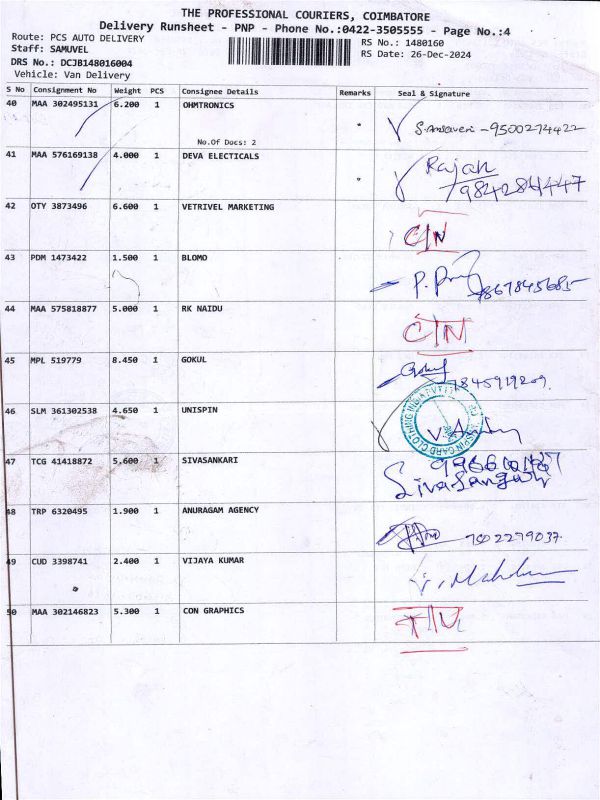 THE PROFESSIONAL COURIERS, COIMBATORE
Delivery Runsheet - PNP - Phone No.:0422-3505555 - Page No.:4
Route: PCS AUTO DELIVERY
RS No.: 1480160
Staff: SAMUVEL
RS Date: 26-Dec-2024
DRS No.: DCJB148016004
Vehicle: Van Delivery
S No Consignment No Weight PCS Consignee Details Remarks Seal & Signature
40 MAA 302495131 6.200 1 OHMTRONICS
No.Of Docs: 2
9500274422
41 MAA 576169138 4.000 1 DEVA ELECTICALS Rajah
42 OTY 3873496 6.600 1 VETRIVEL MARKETING C/N
43 PDM 1473422 1.500 1 BLOMD
44 MAA 575818877 5.000 1 RK NAIDU C/N
45 MPL 519779 8.450 1 GOKUL Gokul
7845919209
46 SLM 361302538 4.650 1 UNISPIN
47 TCG 41418872 5.600 1 SIVASANKARI
48 TRP 6320495 1.900 1 ANURAGAM AGENCY 7502279037
49 CUD 3398741 2.400 1 VIJAYA KUMAR
50 MAA 302146823 5.300 1 CON GRAPHICS